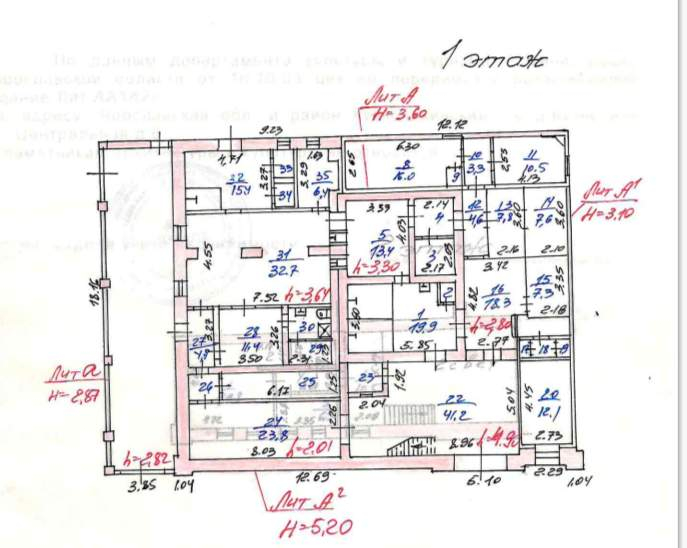 1 этаж
Лит А
Н=3.60
9.23
12.12
4.71
1.63
6.30
2.65
8
16.0
9
10
3.3
2.53
11
10.5
4.13
32
15.4
3.27
33
34
3.29
35
6.4
Лит А¹
Н=3.10
3.39
2.14
4
4.03
5
13.4
3
2.17
h=3,30
12
4.6
13
7.8
3.60
14
7.6
3.60
2.16
2.10
3.42
4.55
31
32.7
7.52
h=3,64
2
1
19.9
3.60
5.85
4.82
16
18.3
h=2,80
2.77
15
7.3
3.35
2.18
18.16
27
4.8
3.27
28
11.4
3.50
3.26
30
29
2.31
1.25
17
18
19
Лит а
Н=2,87
26
6.17
25
1.25
23
1.92
2.04
22
41.2
5.04
8.96
h=4.90
20
12.1
4.45
2.73
24
23.8
2.26
8.03
h=2.01
h=2,82
3.85
1.04
12.69
6.10
2.29
1.04
Лит А²
Н=5,20